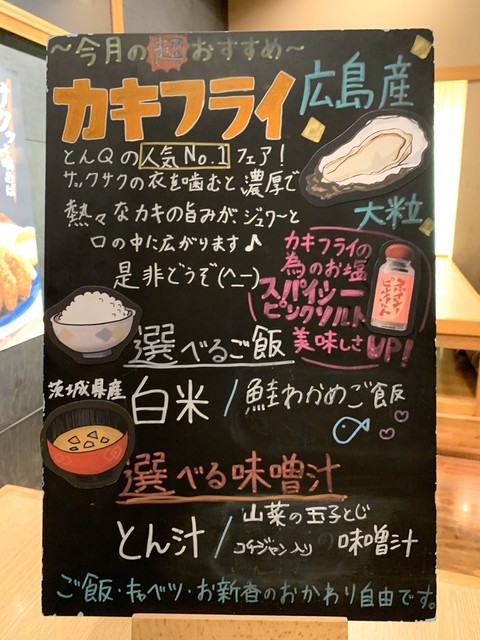 ～今月の超おすすめ～
カキフライ 広島産
とんQの人気No.1フェア!
サックサクの衣を噛むと濃厚で
熱々なカキの旨みがジュワ～と
口の中に広がります♪
大粒
是非どうぞ(^ー^)
カキフライの
為のお塩
スパイシー
ピンクソルト
美味しさUP!
スパイシー
ピンクソルト
選べるご飯
茨城県産
白米 / 鮭わかめご飯
選べる味噌汁
とん汁 / 山菜の玉子とじ
コチジャン入り の味噌汁
ご飯・キャベツ・お新香のおかわり自由です。